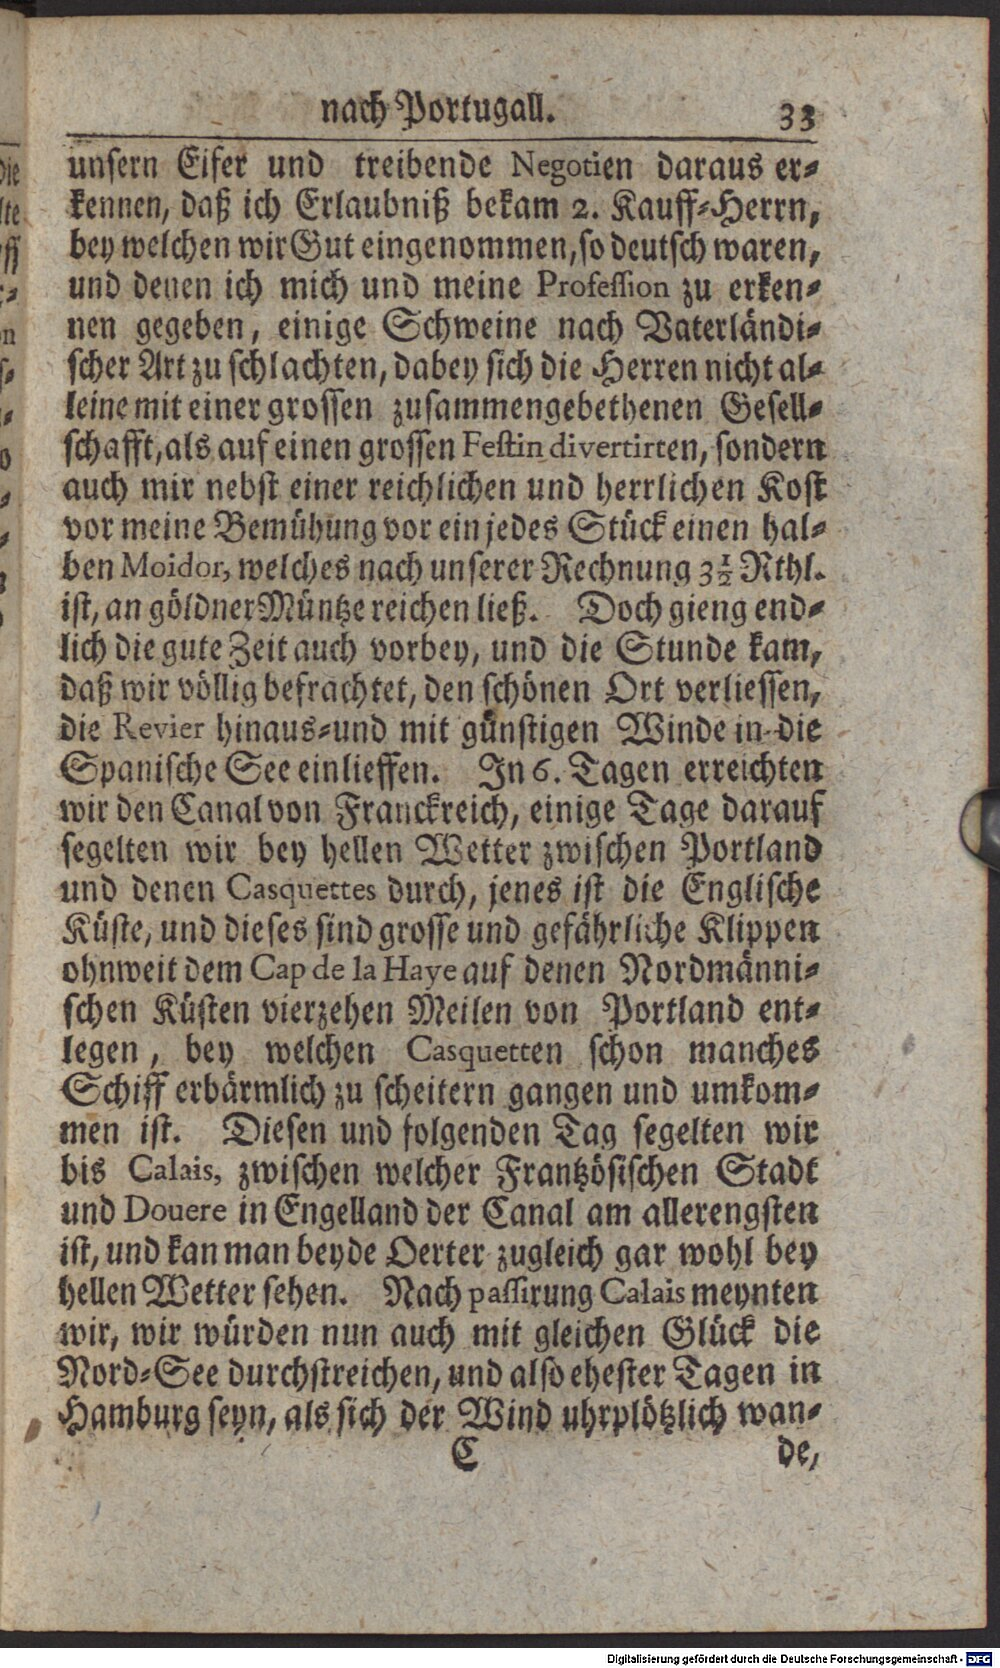 nach Portugall. 33
unsern Eifer und treibende Negotien daraus er-
kennen, daß ich Erlaubniß bekam 2. Kauff-Herrn,
bey welchen wir Gut eingenommen, so deutsch waren,
und denen ich mich und meine Profession zu erken-
nen gegeben, einige Schweine nach Vaterländi-
scher Art zu schlachten, dabey sich die Herren nicht al-
leine mit einer grossen zusammengebethenen Gesell-
schafft, als auf einen grossen Festin divertirten, sondern
auch mir nebst einer reichlichen und herrlichen Kost
vor meine Bemühung vor ein jedes Stück einen hal-
ben Moidor, welches nach unserer Rechnung 3½ Rthl.
ist, an göldner Müntze reichen ließ. Doch gieng end-
lich die gute Zeit auch vorbey, und die Stunde kam,
daß wir völlig befrachtet, den schönen Ort verliessen,
die Revier hinaus-und mit günstigen Winde in die
Spanische See einlieffen. In 6. Tagen erreichten
wir den Canal von Franckreich, einige Tage darauf
segelten wir bey hellen Wetter zwischen Portland
und denen Casquettes durch, jenes ist die Englische
Küste, und dieses sind grosse und gefährliche Klippen
ohnweit dem Cap de la Haye auf denen Nordmänni-
schen Küsten vierzehen Meilen von Portland ent-
legen, bey welchen Casquetten schon manches
Schiff erbärmlich zu scheitern gangen und umkom-
men ist. Diesen und folgenden Tag segelten wir
bis Calais, zwischen welcher Frantzösischen Stadt
und Douere in Engelland der Canal am allerengsten
ist, und kan man beyde Oerter zugleich gar wohl bey
hellen Wetter sehen. Nach passirung Calais meynten
wir, wir würden nun auch mit gleichen Glück die
Nord-See durchstreichen, und also ehester Tagen in
Hamburg seyn, als sich der Wind uhrplötzlich wan-
C de,
Digitalisierung gefördert durch die Deutsche Forschungsgemeinschaft - DFG